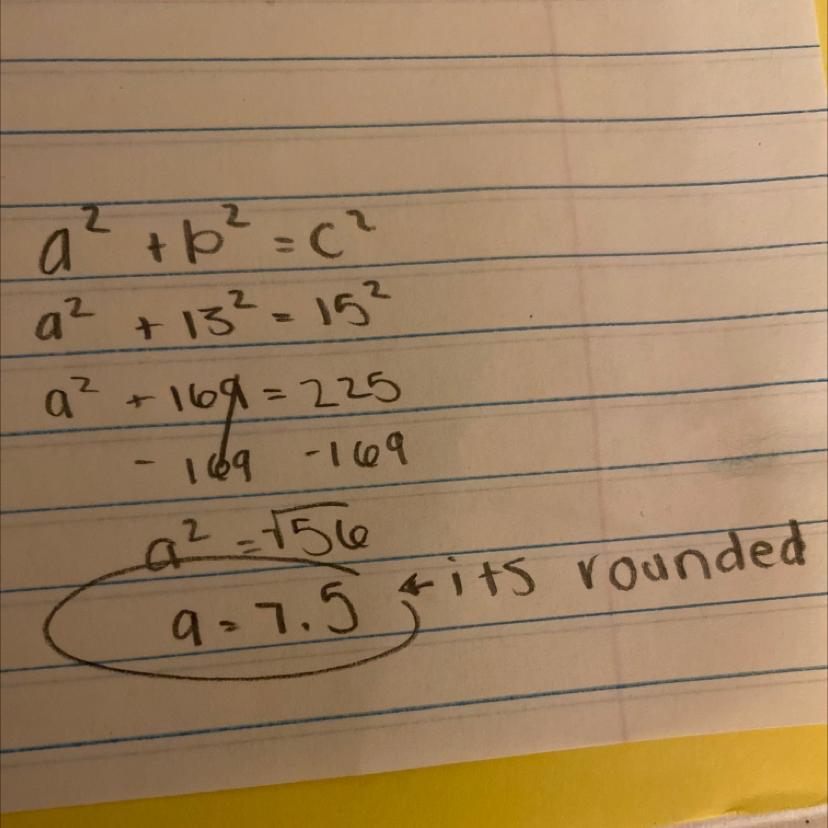 a² + b² = c²
a² + 13² = 15²
a² + 169 = 225
- 169 -169
a² = √56
a = 7.5 ← its rounded